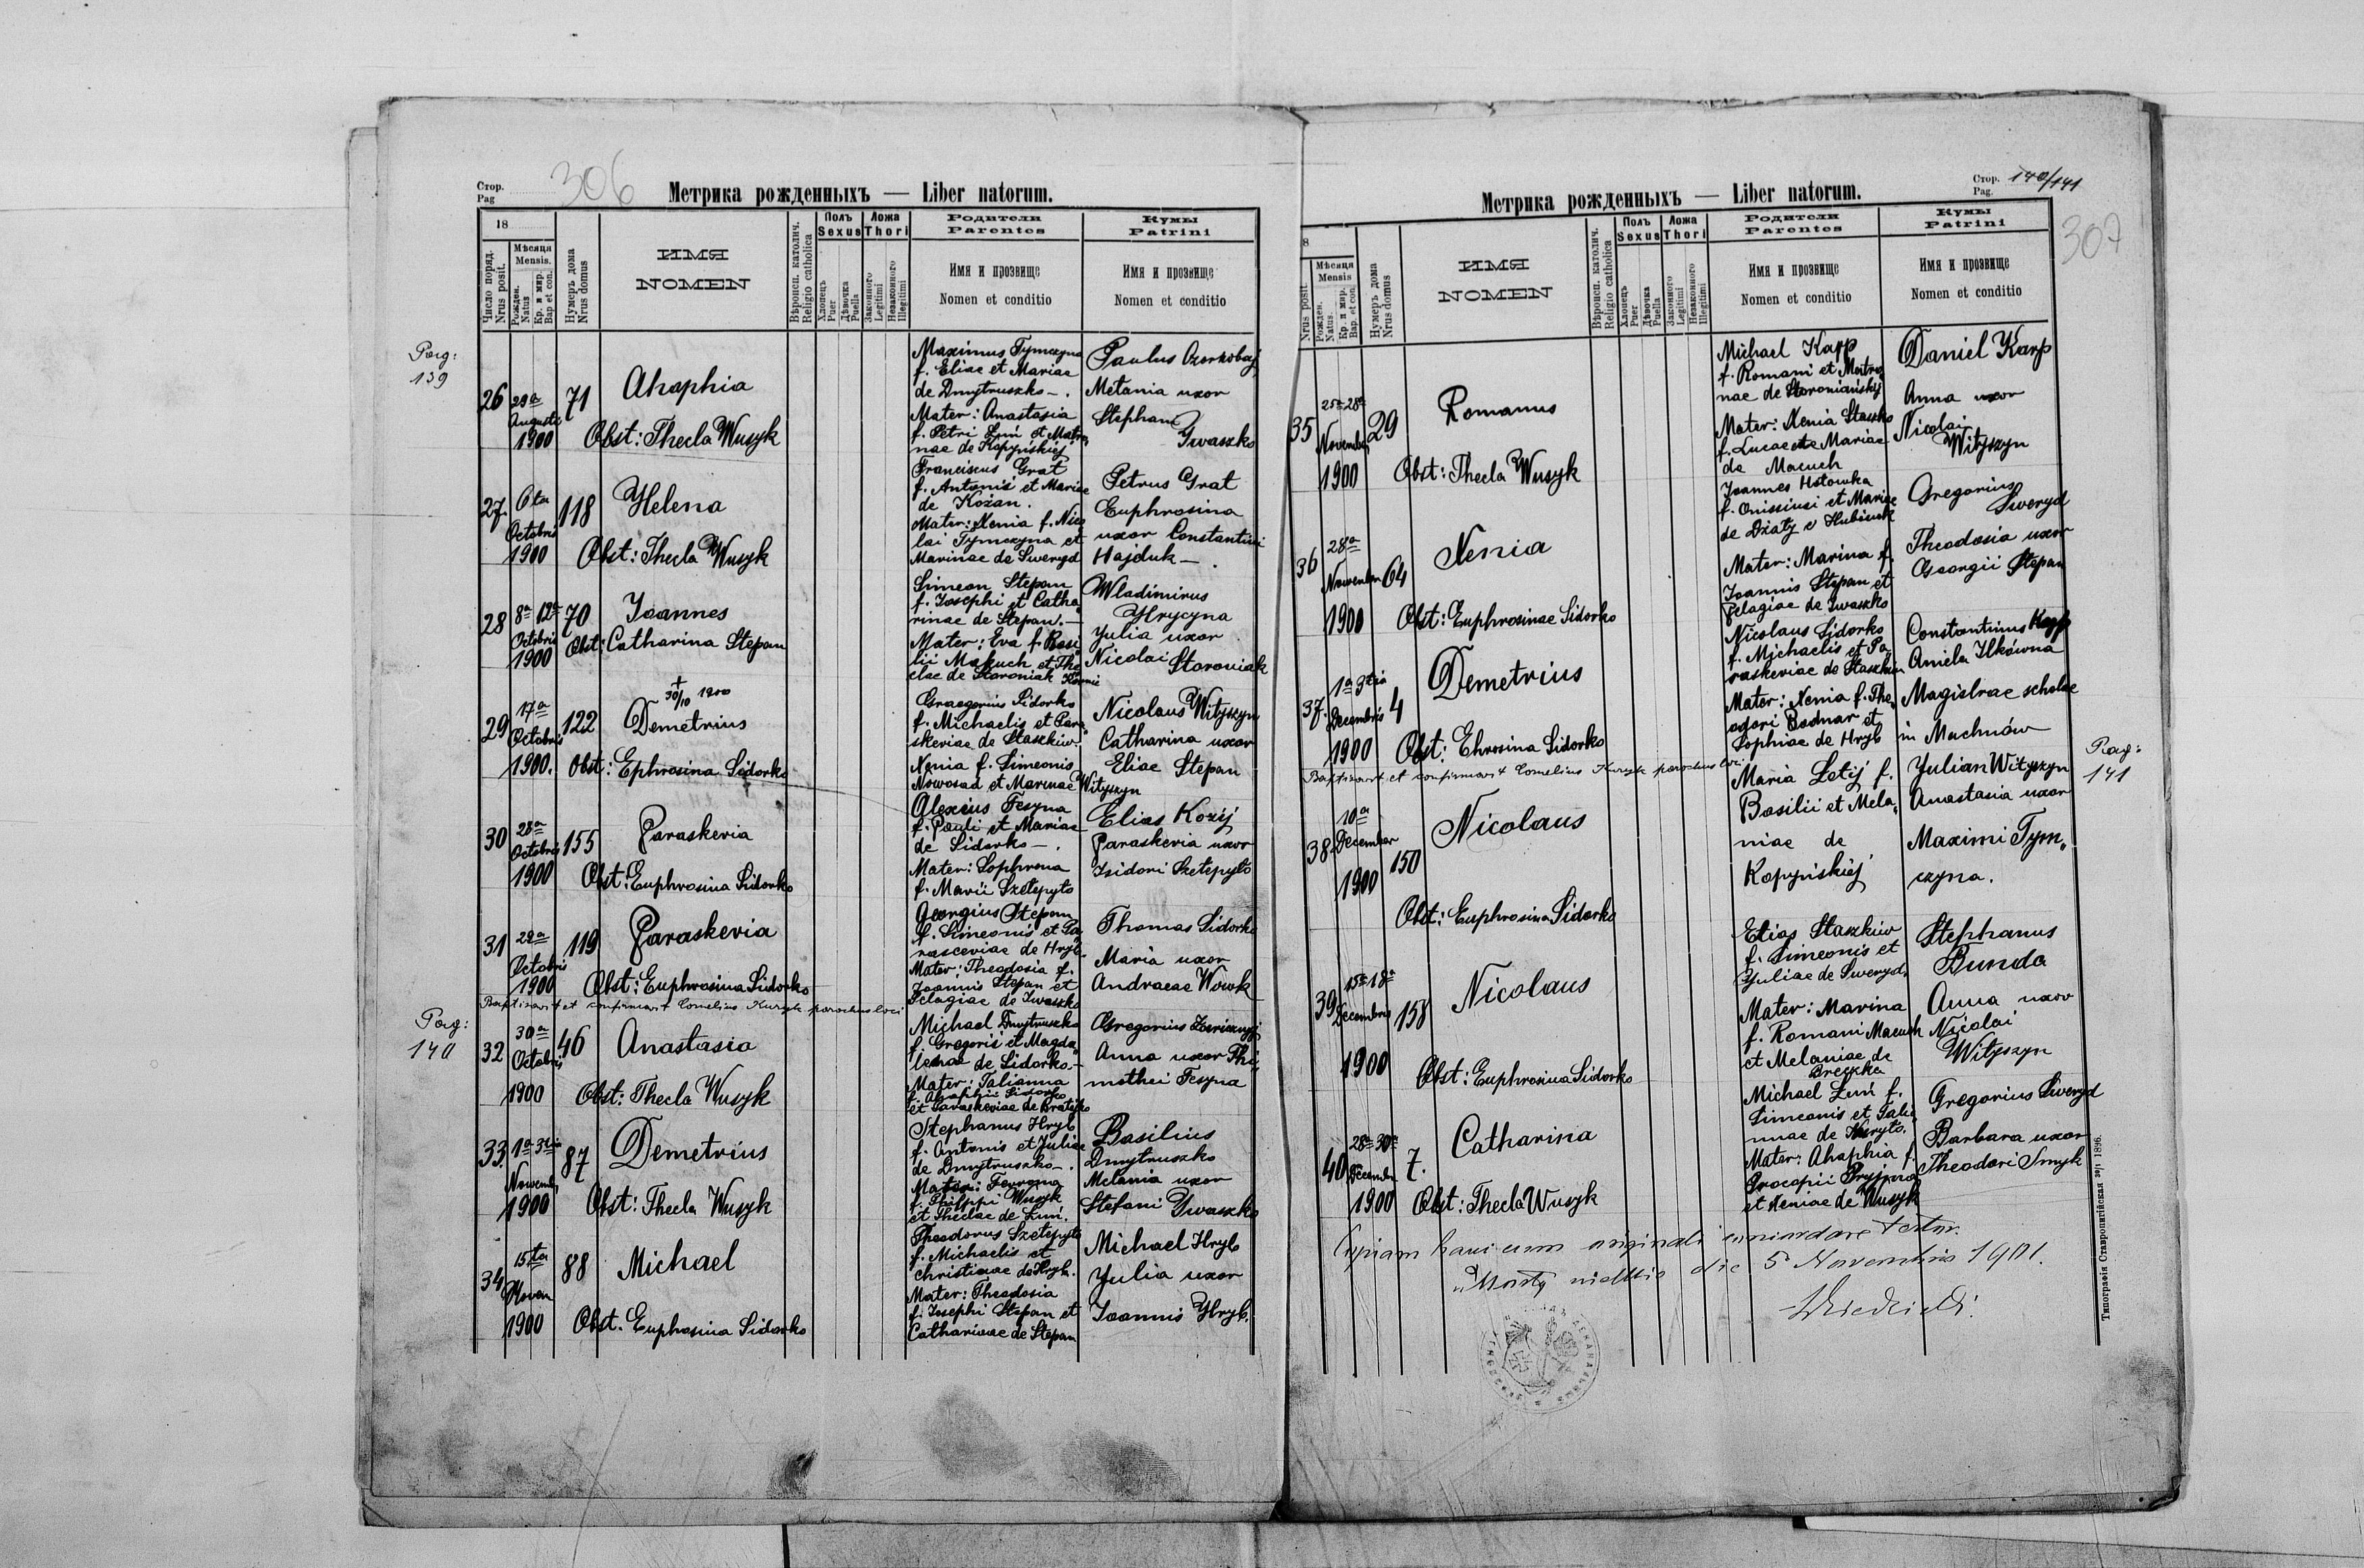 306
Стор.
Pag
Метрика рожденныхъ — Liber natorum.
18
Число поряд.
Nrus posit.
Мѣсяця
Mensis.
Рожден.
Natus
Кр. и мир.
Bap et con.
Нумеръ дома
Nrus domus
ИМЯ
NOMEN
Вѣроисп. католич.
Religio catholica
Полъ
Sexus
Хлопецъ
Puer
Дѣвочка
Puella
Ложа
Thori
Законного
Legitimi
Незаконного
Illegitimi
Родители
Parentes
Имя и прозвище
Nomen et conditio
Кумы
Patrini
Имя и прозвище
Nomen et conditio
Pag:
139
26 29a Augusti 1900 71
Ahaphia
Obst: Thecla Wusyk
Maximus Tymczyna
f. Eliae et Mariae
de Dmytruszko -.
Mater: Anastasia
f. Petri Łuń et Matro
nae de Kopyńskiej
Paulus
Metania uxor
Stephani
Ywaszko
27. 6ta Octobris 1900 118
Helena
Obst: Thecla Wusyk
Franciscus Grat
f. Antonii et Mariae
de Kożan.
Mater: Xenia f. Nico
lai Tymczyna et
Marinae de Sweryd
Petrus Grat
Euphrosina
uxor Constantini
Hajduk -.
28 8a 12a Octobris 1900 70
Joannes
Obst: Catharina Stepan
Simeon Stepan
f. Josephi et Catha
rinae de Stepan. -
Mater: Eva f. Basi
lii Makuch et The
clae de Storoniak
Wladimirus
Hrycyna
Yulia uxor
Nicolai Storoniak
29 17a Octobris 1900. 122
+ 30/10 1900
Demetrius
Obst: Ephrosina Sidorko
Graegorius Sidorko
f. Michaelis et Para
skeviae de Staszkiw.
Xenia f. Simeonis
Nowosad et Marinae Wityszyn
Nicolaus Wityszyn
Catharina uxor
Eliae Stepan
30 28a Octobris 1900 155
Paraskevia
Obst: Euphrosina Sidorko
Alexius Fesyna
f. Pauli et Mariae
de Sidorko -.
Mater: Sophrona
f. Marii Szetepyto
Elias Kozij
Paraskevia uxor
Isidori Szetepyto
31 29a Octobris 1900 119
Paraskevia
Obst: Euphrosina Sidorko
Georgius Stepan
f. Simeonis et Pa
rasceviae de Hryb
Mater: Theodosia f.
Joannis Stepan et
Pelagiae de Iwaszko
Thomas Sidorko
Maria uxor
Andraeae Wowk
Baptisavit et confirmavit Cornelius Kuryk parochus loci
Pag:
140
32 30a Octobris 1900 46
Anastasia
Obst: Thecla Wusyk
Michael Dmytruszko
f. Gregorii et Magda
lenae de Sidorko. -
Mater: Talianna
f. Ahaphii Sidorko
et Paraskeviae de
Gregorius
Anna uxor Thi
mothei Fesyna
33. 1a 3tia Novemb. 1900 87
Demetrius
Obst: Thecla Wusyk
Stephanus Hryb
f. Antonis et Juliae
de Dmytruszko -.
Mater: Fevrona
f. Philippi Wusyk
et Theclae de Łuń.
Basilius
Dmytruszko
Melania uxor
Stefani Ywaszko
34 15ta Novem 1900 88
Michael
Obst. Euphosina Sidorko
Theodorus Szetepyto
f. Michaelis et
Christinae de Hryb.
Mater: Theodosia
f. Josephi Stepan et
Catharinae de Stepan
Michael Hryb
Yulia uxor
Joannis Hryb.
Стор.
Pag. 140/141
307
Метрика рожденныхъ — Liber natorum.
8
Nrus posit.
Мѣсяця
Mensis
Рожден.
Natus.
Кр. и мир.
Bap. et con.
Нумеръ дома
Nrus domus
ИМЯ
NOMEN
Вѣроисп. католич.
Religio catholica
Полъ
Sexus
Хлопецъ
Puer
Дѣвочка
Puella
Ложа
Thori
Законного
Legitimi
Незаконного
Illegitimi
Родители
Parentes
Имя и прозвище
Nomen et conditio
Кумы
Patrini
Имя и прозвище
Nomen et conditio
35 25a 28a Novembr 1900 29
Romanus
Obst: Thecla Wusyk
Michael Karp
f. Romani et Matro
nae de Storoniańskij
Mater: Xenia Staszko
f. Lucae et Mariae
de Macuch
Daniel Karp
Anna uxor
Nicolai
Wityszyn
36 28a Novembr 1900 64
Xenia
Obst: Euphrosinae Sidorko
Joannes Hotowka
f. Onissiusi et Mariae
de
Mater: Marina f.
Joannis Stepan et
Pelagiae de Iwaszko
Gregorius
Sweryd
Theodosia uxor
Georgii Stepan
37. 1a 3tia Decembris 1900 4
Demetrius
Obst: Ehrosina Sidorko
Nicolaus Sidorko
f. Michaelis et Pa
raskeviae de Staszkiw
Mater: Xenia f. The
odori Bodnar et
Sophiae de Hryb
Constantinus Karp
Aniela Ilkówna
Magistrae scholae
in Machnów
Baptisavit et confirmavit Cornelius Kuryk parochus loci
Pag:
141
38. 10a December 1900 150
Nicolaus
Obst: Euphrosina Sidorko
Maria Letij f.
Basilii et Mela
niae de
Kopyńskiej
Yulian Wityszyn
Anastasia uxor
Maximi Tym
czyna.
39 15a 18a Decembris 1900 158
Nicolaus
Obst: Euphrosina Sidorko
Elias Staszkiw
f. Simeonis et
Yuliae de Sweryd.
Mater: Marina
f. Romani Macuch
et Melaniae de
Breczka
Stephanus
Bunda
Anna uxor
Nicolai
Wityszyn
40 28a 30a Decembr 1900 7.
Catharina
Obst: Thecla Wusyk
Michael Łuń f.
Simeonis et Tali
nnae de Kuryto.
Mater: Ahaphia f.
Procopii Pryjma
et Xeniae de Wusyk
Gregorius Sweryd
Barbara uxor
Theodori Smyk
Copiam hanc cum originali concordare testor.
die 5 Novembris 1901.
Типографія Ставропигійская зар 1896.